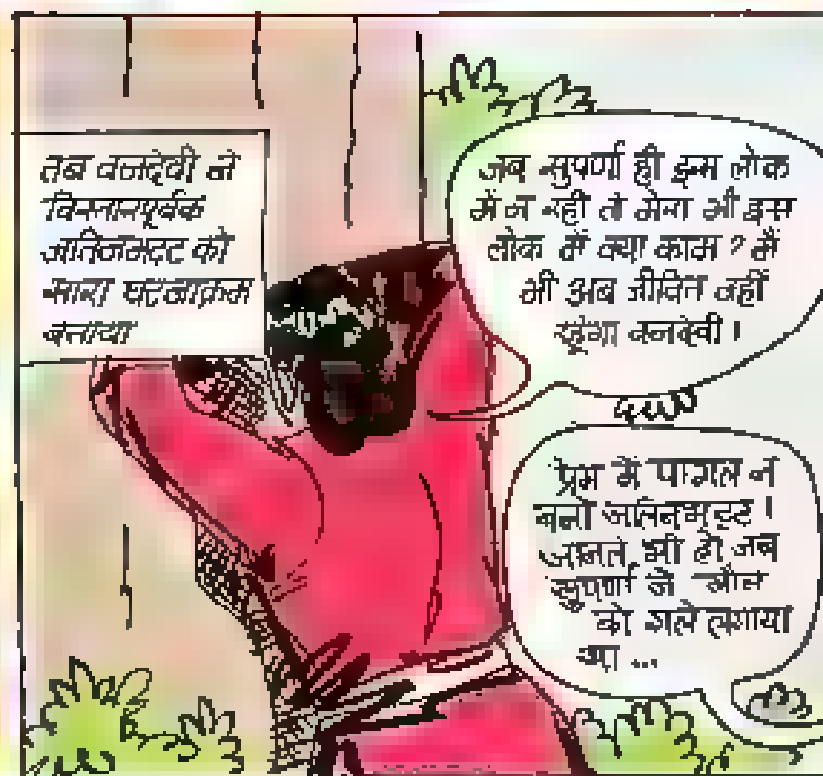 तब वनदेवी ने
विस्तारपूर्वक
जतिनभट्ट को
सारा घटनाक्रम
बताया
जब सुपर्णा ही इस लोक
में न रही तो मेरा भी इस
लोक में क्या काम ? मैं
भी अब जीवित नहीं
रहूंगा वनदेवी ।
प्रेम में पागल न
बनो जतिनभट्ट ।
जानते भी हो जब
सुपर्णा ने मौत
को गले लगाया
था ...